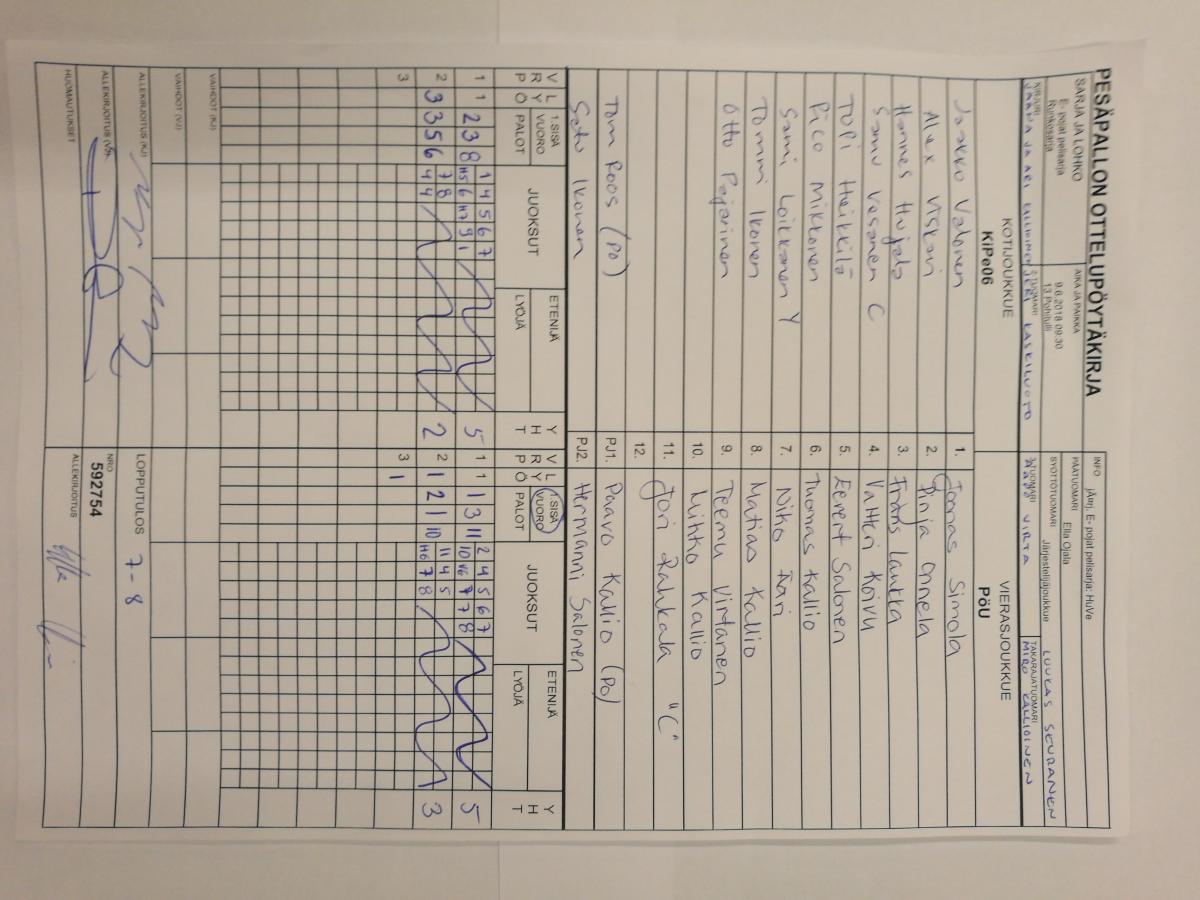 PESÄPALLON OTTELUPÖYTÄKIRJA
SARJA JA LOHKO
E- pojat pelisarja
Runkosarja
AIKA JA PAIKKA
9.6.2018 09:30
13 Pohitulli
INFO jÄrrj. E- pojat pelisarja: HuVe
PÄÄTUOMARI Ella Ojala
SYÖTTÖTUOMARI Järjestelijäjoukkue LUUKAS SEURANEN
KIRJURI
2-TUOMARI
3-TUOMARI
VIRTA
TAKARAJATUOMARI
MIRO KALLIOINEN
KOTIJOUKKUE
KiPe06
VIERASJOUKKUE
PöU
Jaakko Valonen 1. Joonas Simola
Alex Viskari 2. Pinja Onnela
Hannes Hujala 3. Frans Laukka
Samu Vesanen C 4. Valtteri Koivu
Topi Heikkilä 5. Eevert Salonen
Pico Mikkonen 6. Tuomas Kallio
Sami Loikkanen Y 7. Niko
Tommi Ikonen 8. Matias Kallio
Otto Pajarinen 9. Teemu Virtanen
10. Mihko Kallio
11. Jori "C"
12.
Tom Roos (PO) PJ1. Paavo Kallio (PO)
Satu Ikonen PJ2. Hermanni Salonen
V R P L Y Ö 1.SISÄ VUORO PALOT JUOKSUT ETENIJÄ LYÖJÄ Y H T
V R P L Y Ö 1.SISÄ VUORO PALOT JUOKSUT ETENIJÄ LYÖJÄ Y H T
1 1 2 3 8 1 4 5 6 7 5 1 1 1 3 11 2 4 5 6 7 5
H5 6 H7 9 1 10 V6 7 7 8
2 3 3 5 6 7 8 2 2 1 2 1 10 11 4 5 3
4 4 H6 7 8
3 3 1
VAIHDOT (KJ)
VAIHDOT (VJ)
ALLEKIRJOITUS (KJ)
LOPPUTULOS 7 - 8
ALLEKIRJOITUS (VJ)
NRO
592754
HUOMAUTUKSET
ALLEKIRJOITUS